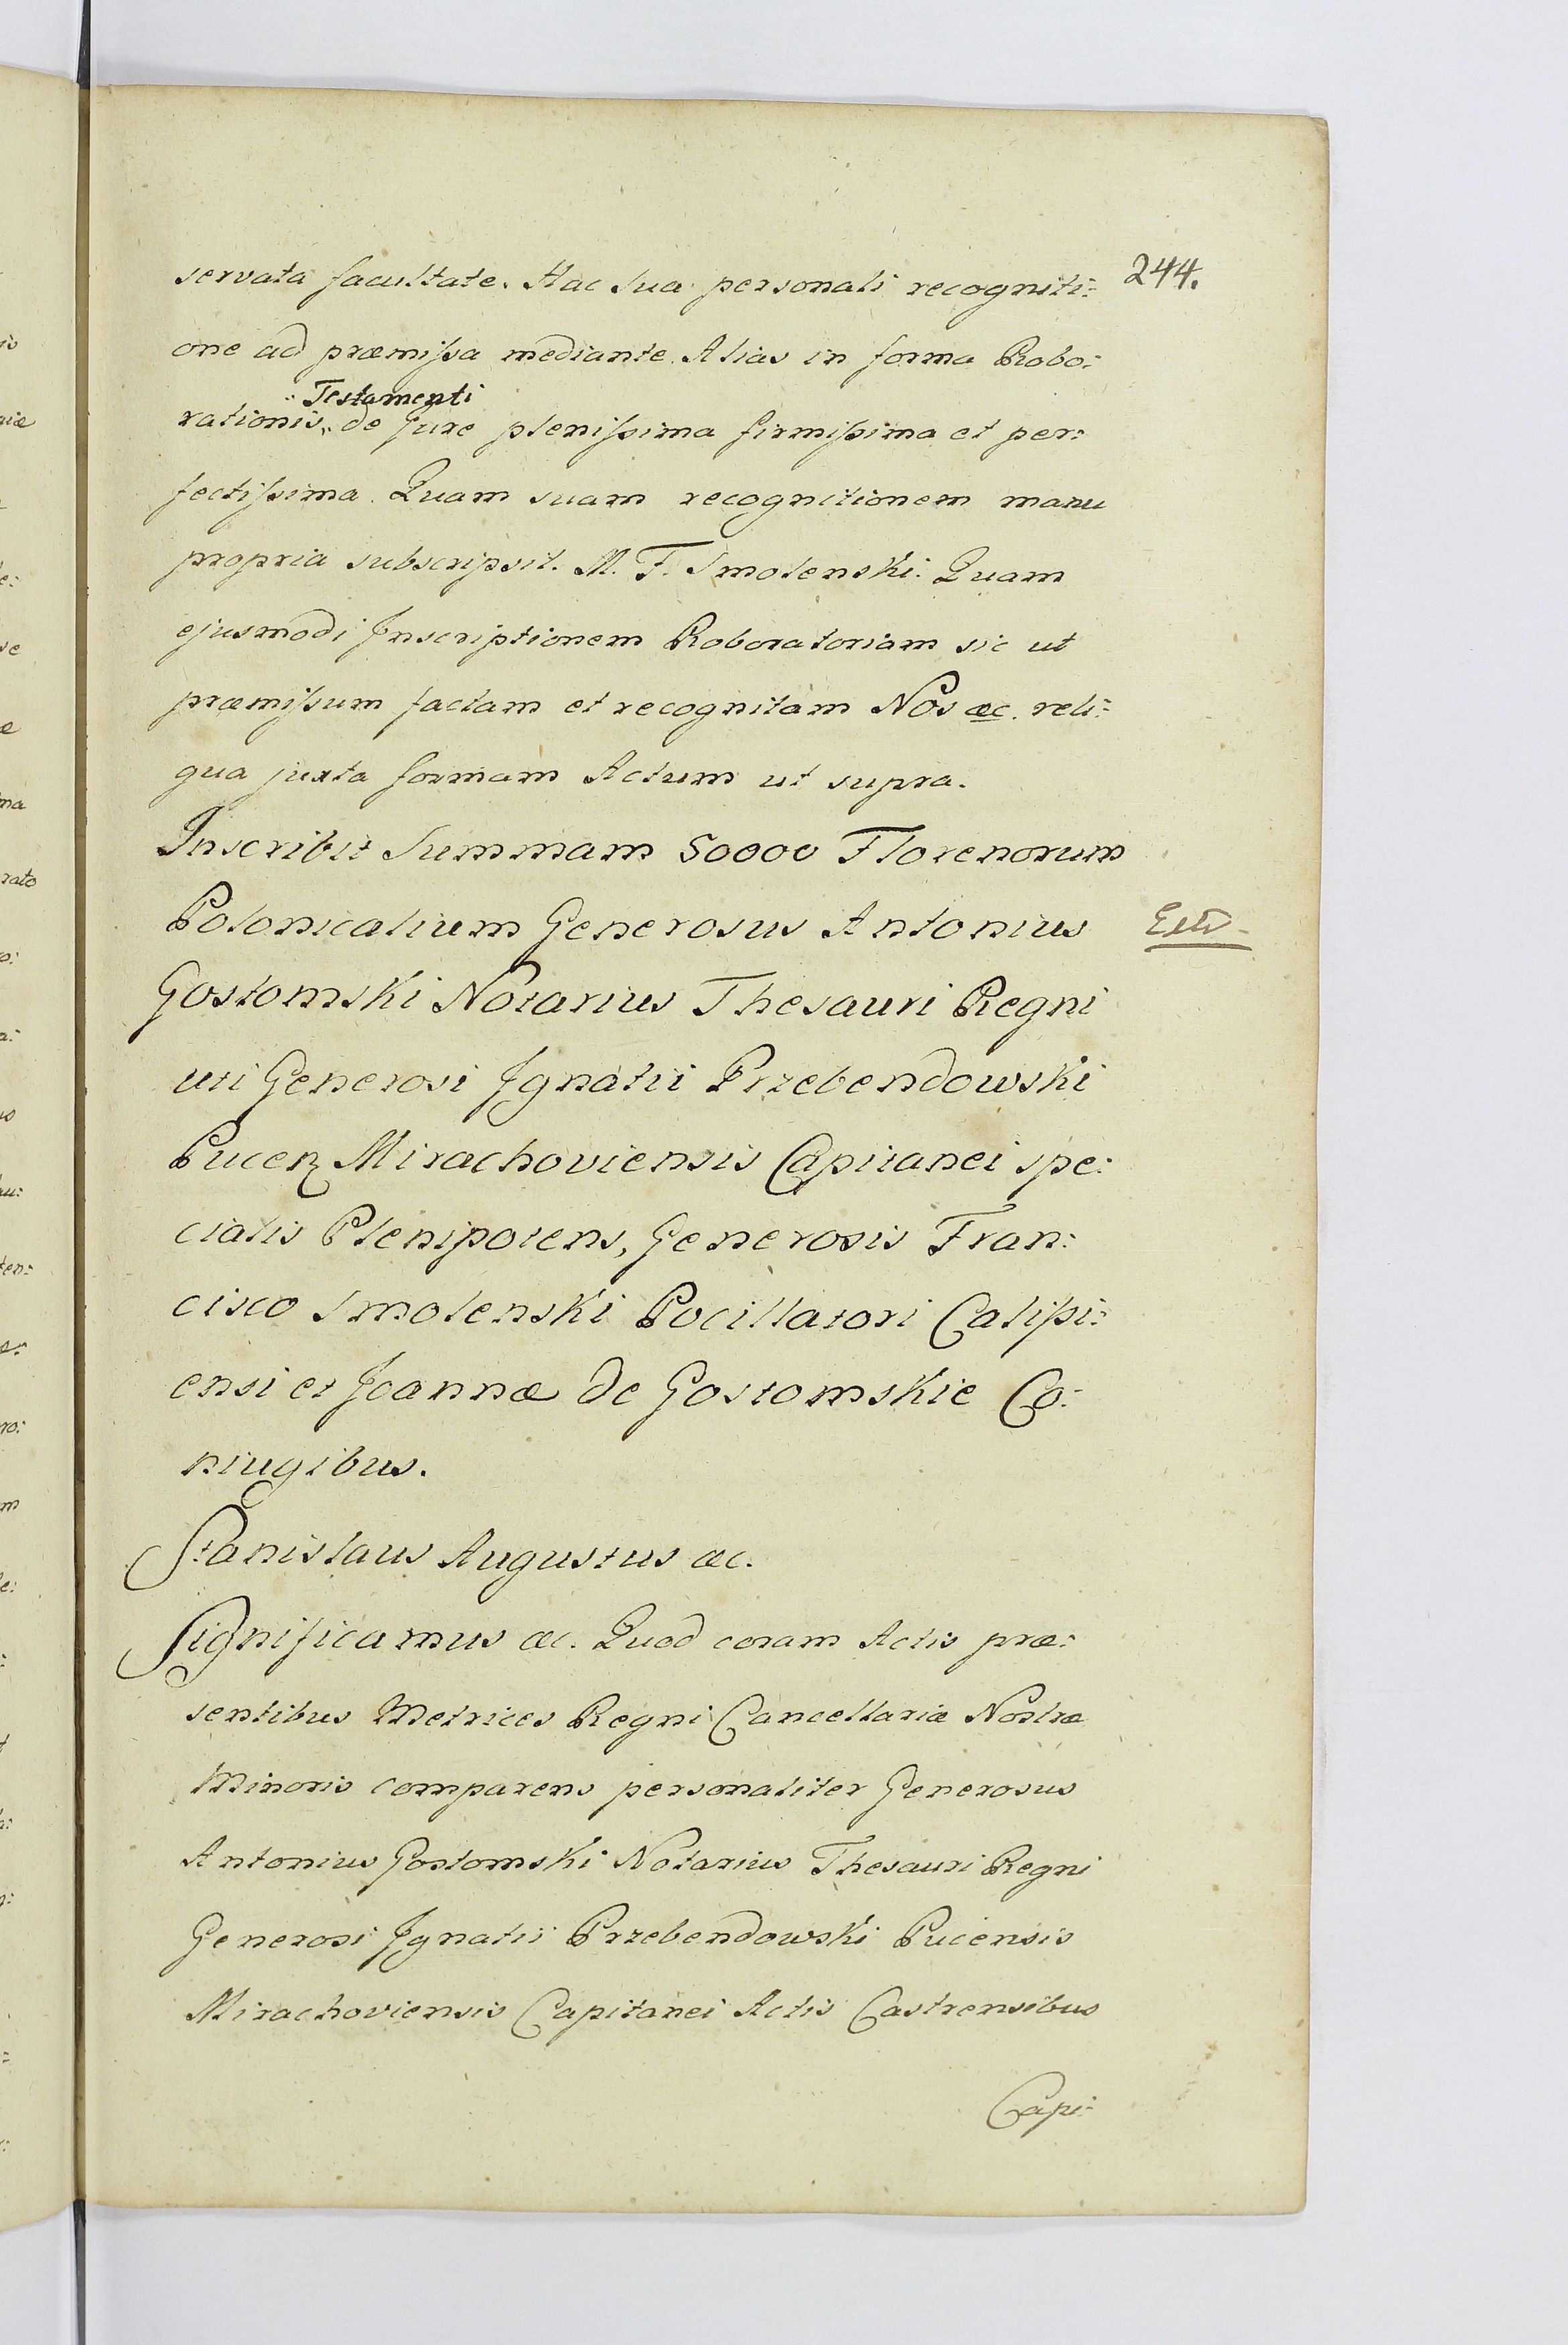 servata facultate. Hac sua personali recogniti:
244.
one ad præmissa mediante. Alias in forma Robo:
Testamenti
rationis, de Jure plenissima firmissima et per:
fectissima. Quam suam recognitionem manu
propria subscripsit. M. F. Smolenski. Quam
ejusmodi Inscriptionem Roboratoriam sic ut
præmissum factam et recognitam Nos æc. reli:
qua juxta formam Actum ut supra.
Inscribit Summam 50000 Florenorum
Polonicalium Generosus Antonius
Gostomski Notarius Thesauri Regni
uti Generosi Ignatii Przebendowski
Pucen Mirachoviensis Capitanei spe:
cialis Plenipotens, Generosis Fran:
cisco Smolenski Pocillatori Calissi:
ensi et Joannæ de Gostomskie Co:
niugibus.
Stanislaus Augustus æc.
Significamus æc. Quod coram Actis præ:
sentibus Metrices Regni Cancellariæ Nostræ
Minoris comparens personaliter Generosus
Antonius Gostomski Notarius Thesauri Regni
Generosi Ignatii Przebendowski Pucensis
Mirachoviensis Capitanei Actis Castrensibus
Capi: